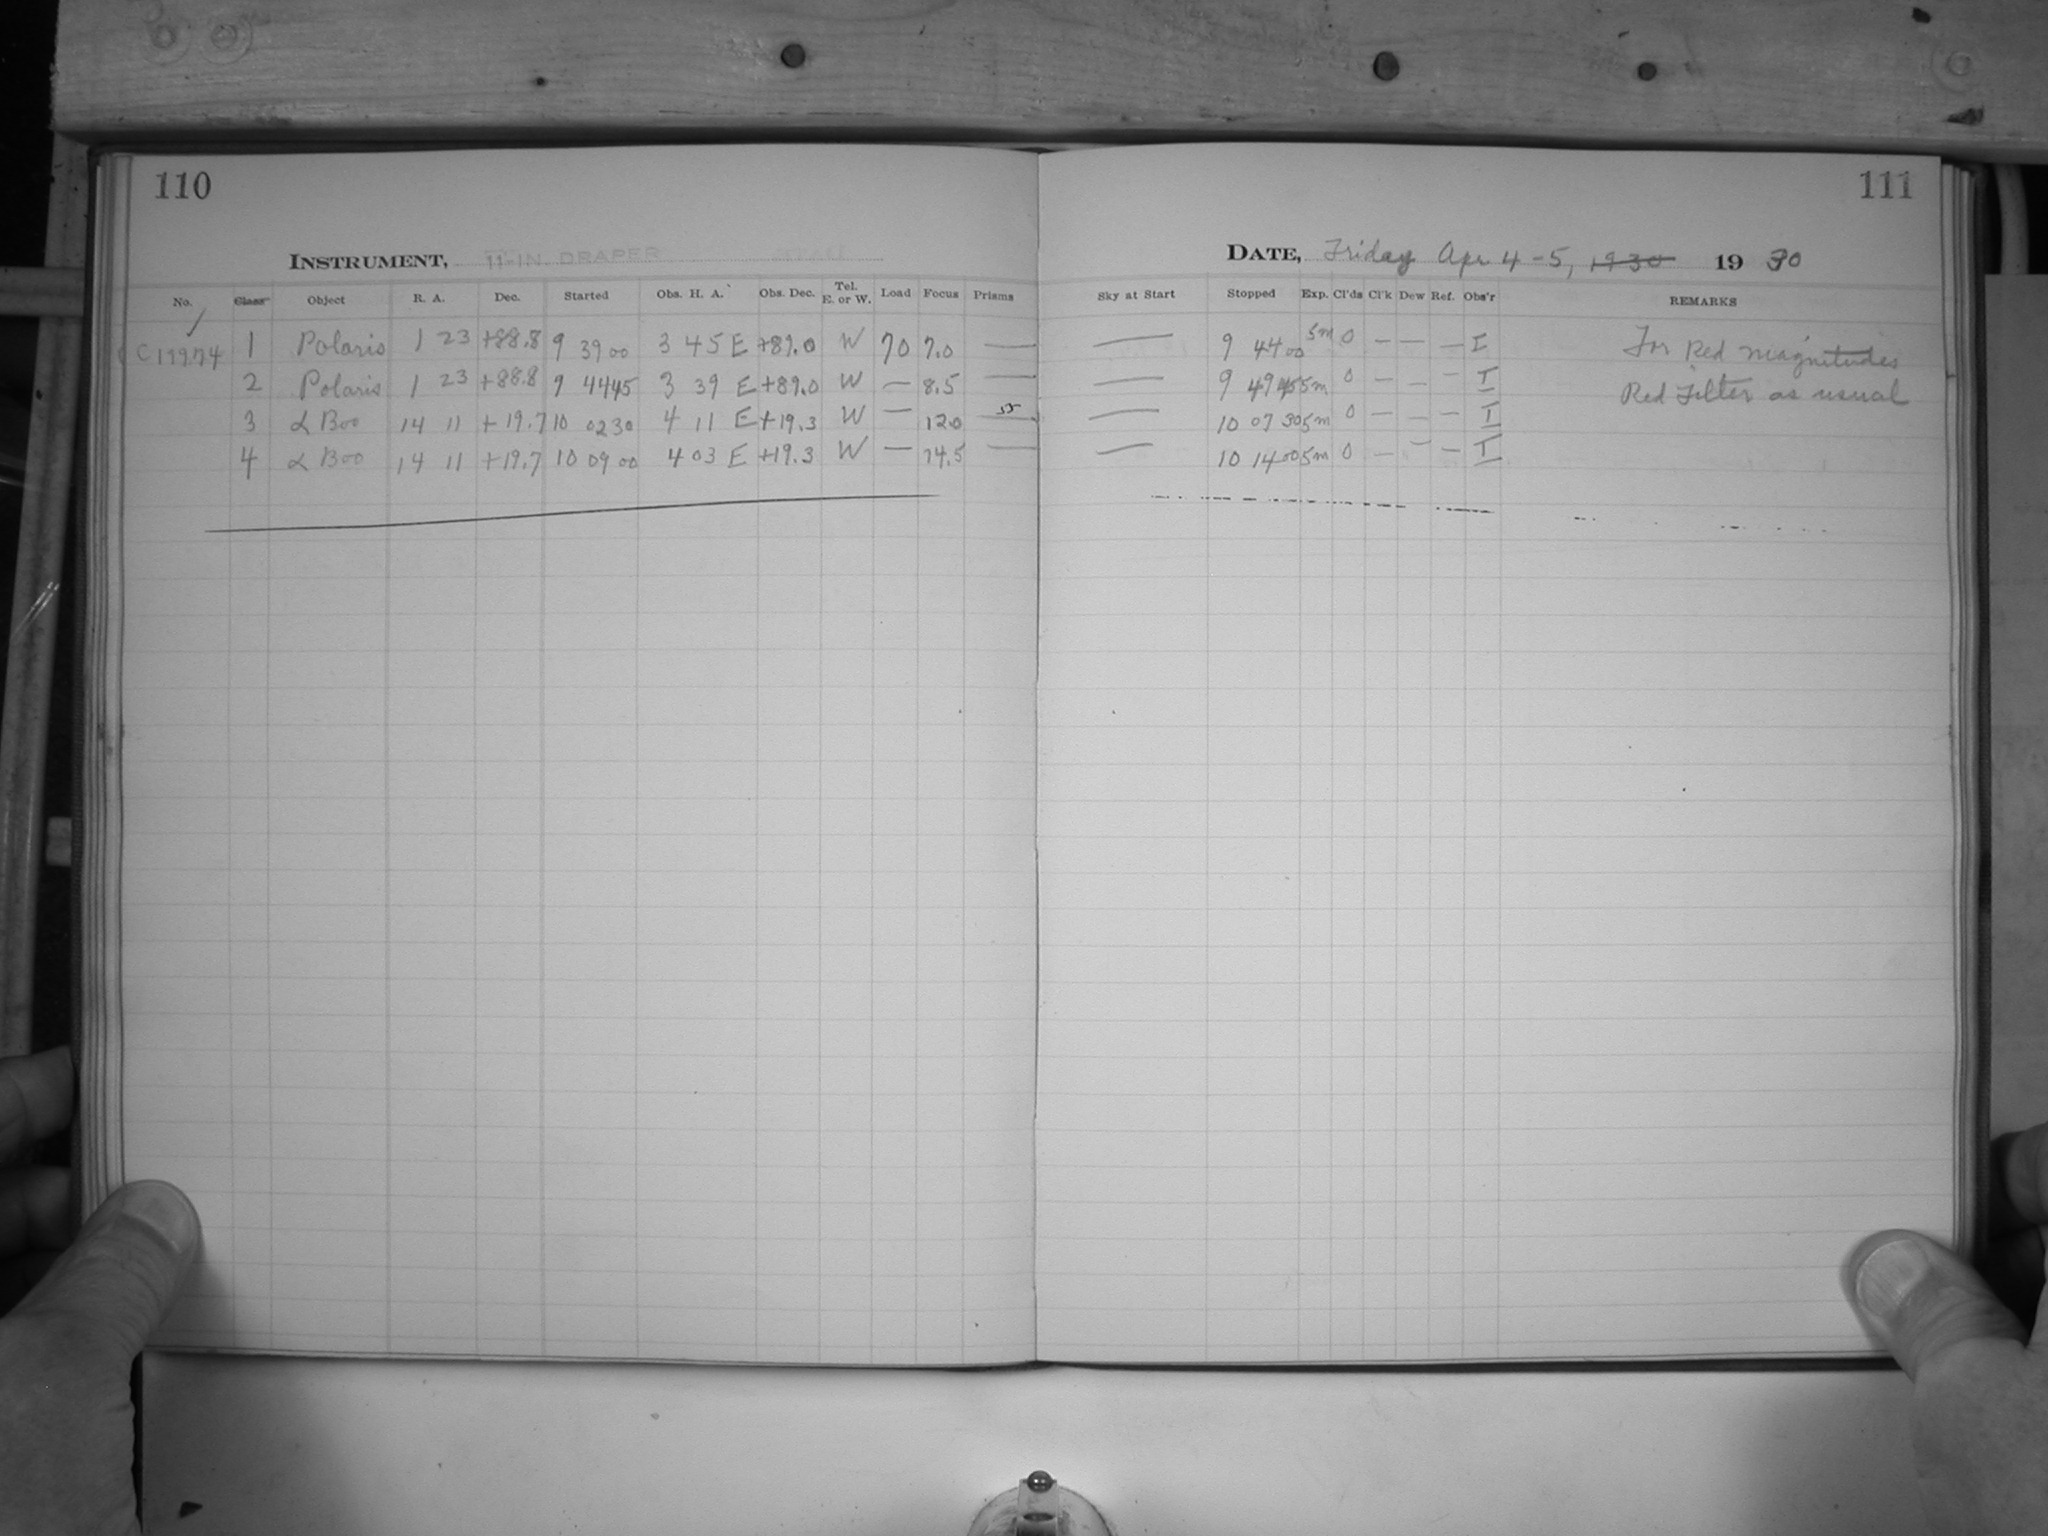 110
INSTRUMENT, 11-IN. DRAPER
No. Class Object R. A. Dec. Started Obs. H. A. Obs. Dec. Tel. E. or W. Load Focus Prisms
C17974 1 Polaris 1 23 +88.8 9 39 00 3 45 E +89.0 W 70 7.0 —
2 Polaris 1 23 +88.8 9 44 45 3 39 E +89.0 W — 8.5 —
3 α Boo 14 11 +19.7 10 02 30 4 11 E +19.3 W — 12.0 —
4 α Boo 14 11 +19.7 10 09 00 4 03 E +19.3 W — 14.5 —
111
DATE, Friday Apr 4-5, 1930 19 30
Sky at Start Stopped Exp. Cl'ds Cl'k Dew Ref. Obs'r REMARKS
— 9 44 00 5m 0 — — — I For Red magnitudes
— 9 49 45 5m 0 — — — I Red Filter as usual
— 10 07 30 5m 0 — — — I
— 10 14 00 5m 0 — — — I